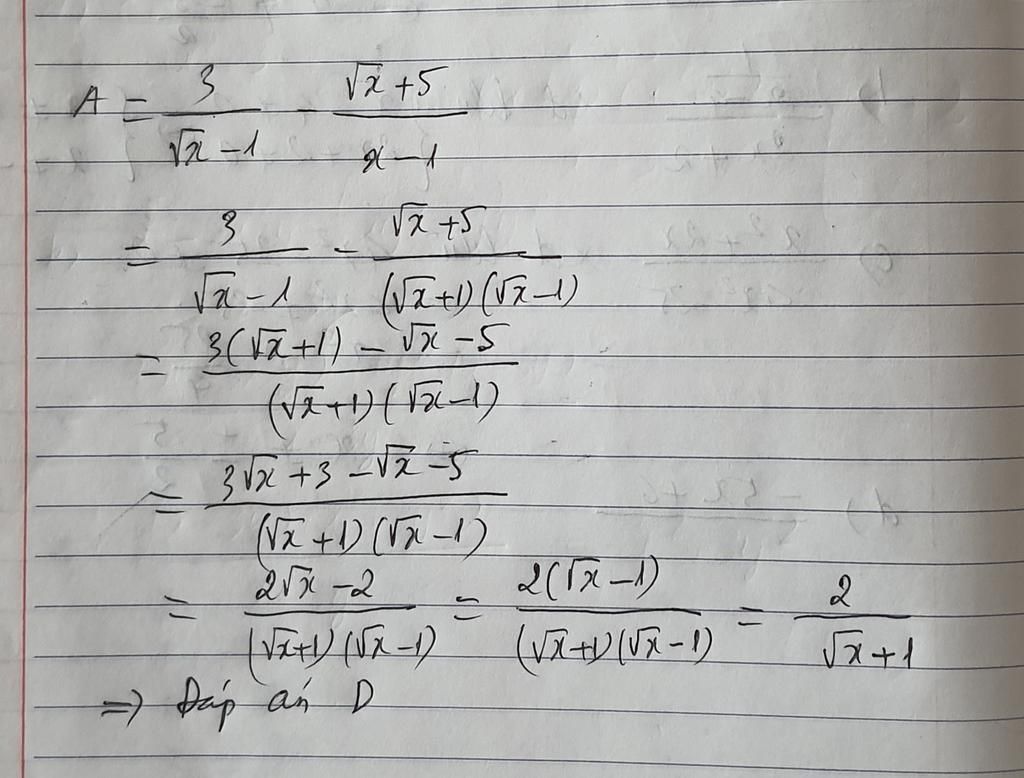 A = 3/(√x - 1) - (√x + 5)/(x - 1)
= 3/(√x - 1) - (√x + 5)/((√x + 1)(√x - 1))
= (3(√x + 1) - √x - 5)/((√x + 1)(√x - 1))
= (3√x + 3 - √x - 5)/((√x + 1)(√x - 1))
= (2√x - 2)/((√x + 1)(√x - 1)) = (2(√x - 1))/((√x + 1)(√x - 1)) = 2/(√x + 1)
=> Đáp án D